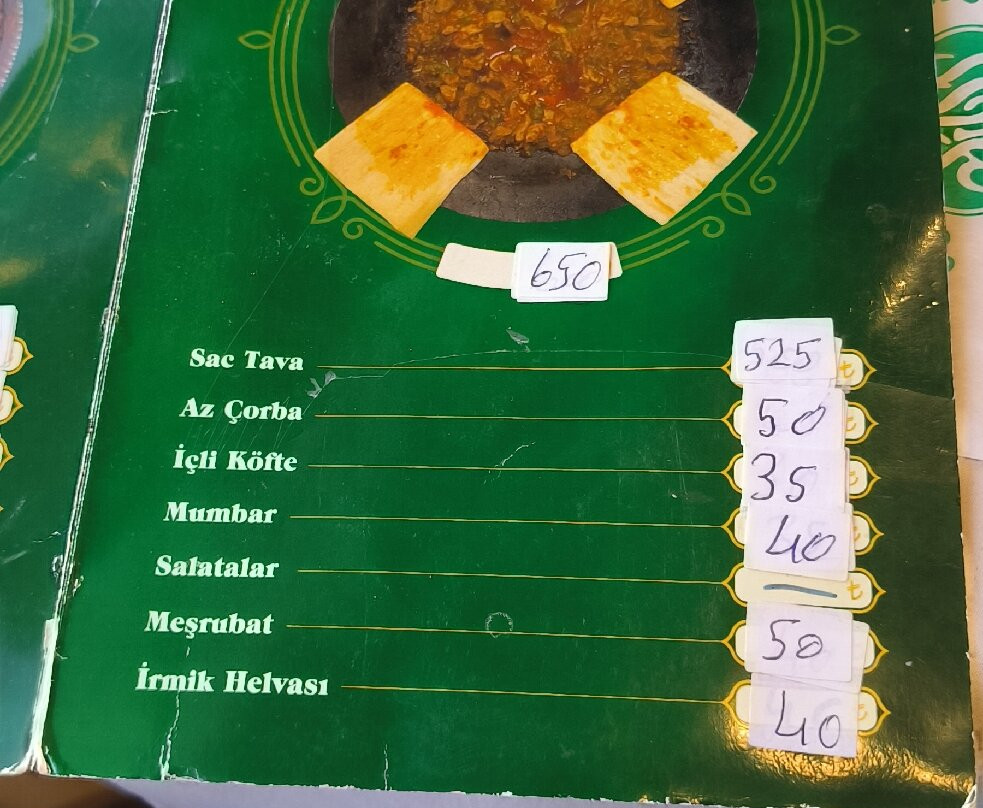 650
Sac Tava 525 ₺
Az Çorba 50 ₺
İçli Köfte 35 ₺
Mumbar 40 ₺
Salatalar — ₺
Meşrubat 50
İrmik Helvası 40 ₺